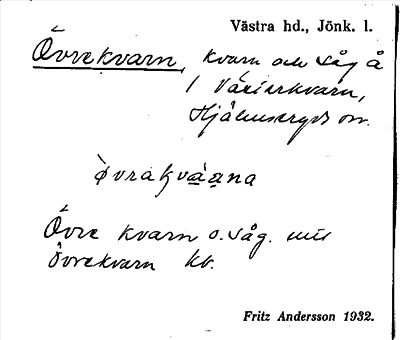 Västra hd., Jönk. l.
Övrekvarn, kvarn och såg å
1 Väderkvarn,
Hjälmseryds sn.
òvrakvá̱a̱na
Övre kvarn o. såg. mil
Övrekvarn kv.
Fritz Andersson 1932.